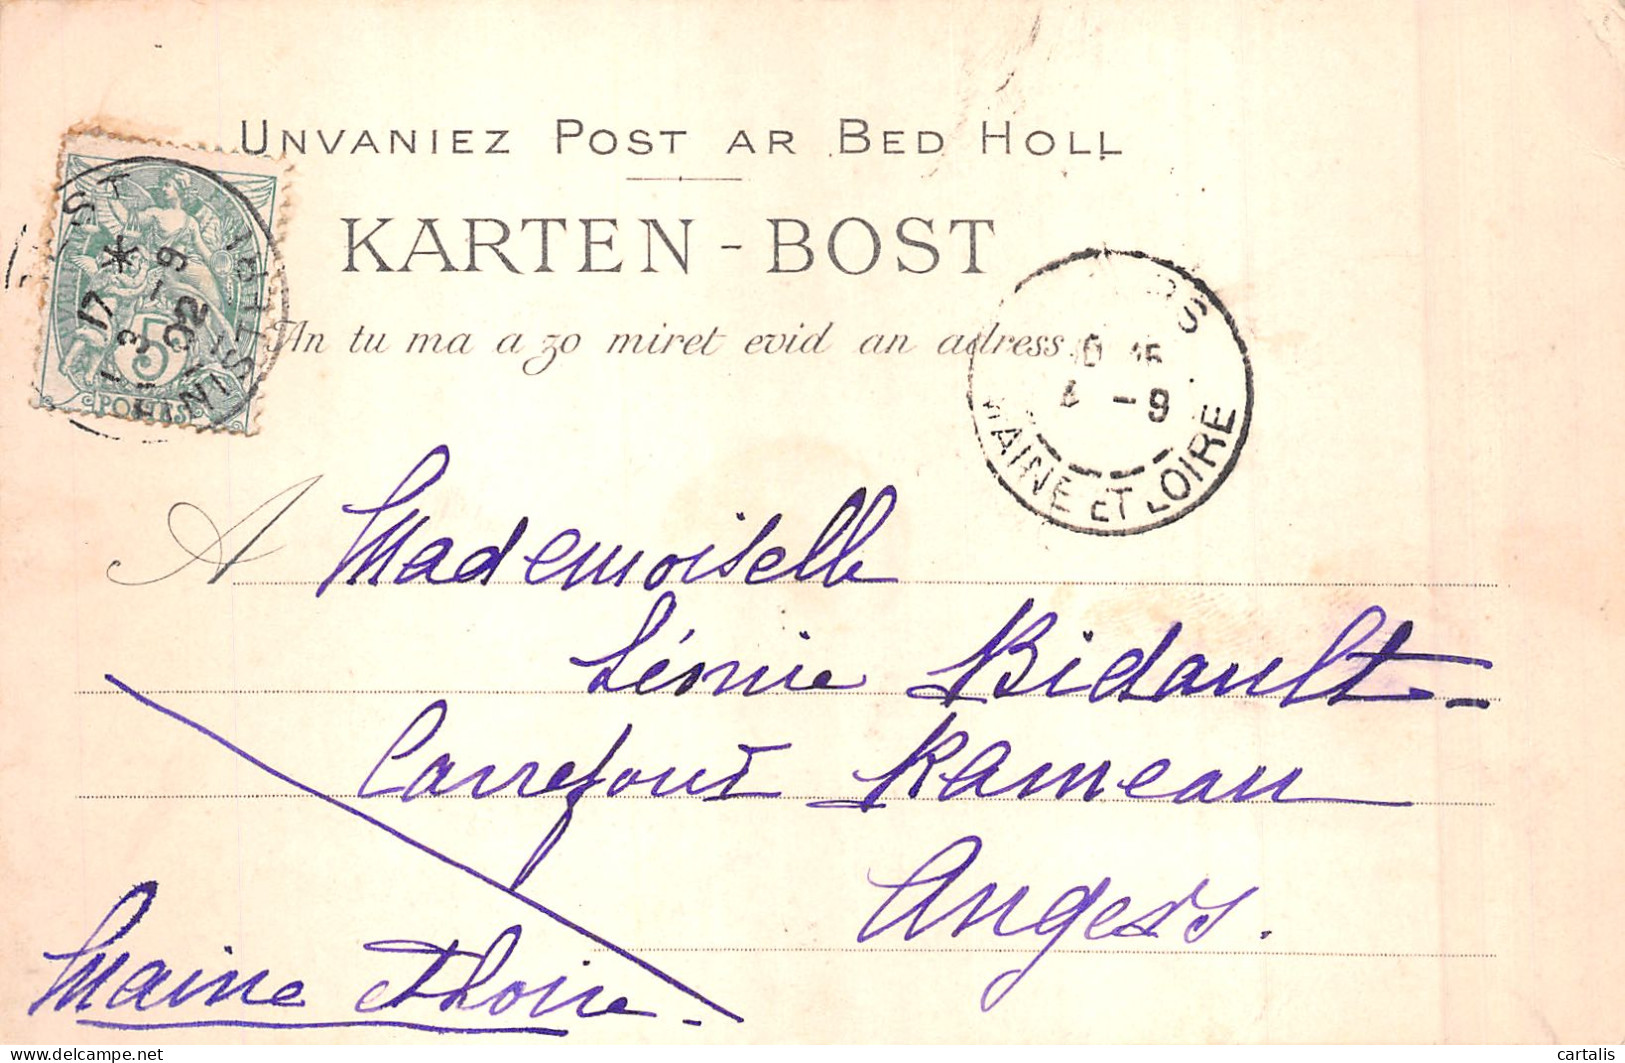 UNVANIEZ POST AR BED HOLL
KARTEN-BOST
An tu ma a zo miret evid an adress
17 *
3 -9
02
5
POSTES
-9
MAINE ET LOIRE
A Mademoiselle
Léonie Bidault
Carrefour Rameau
Angers.
Maine et Loire
delcampe.net
cartalis